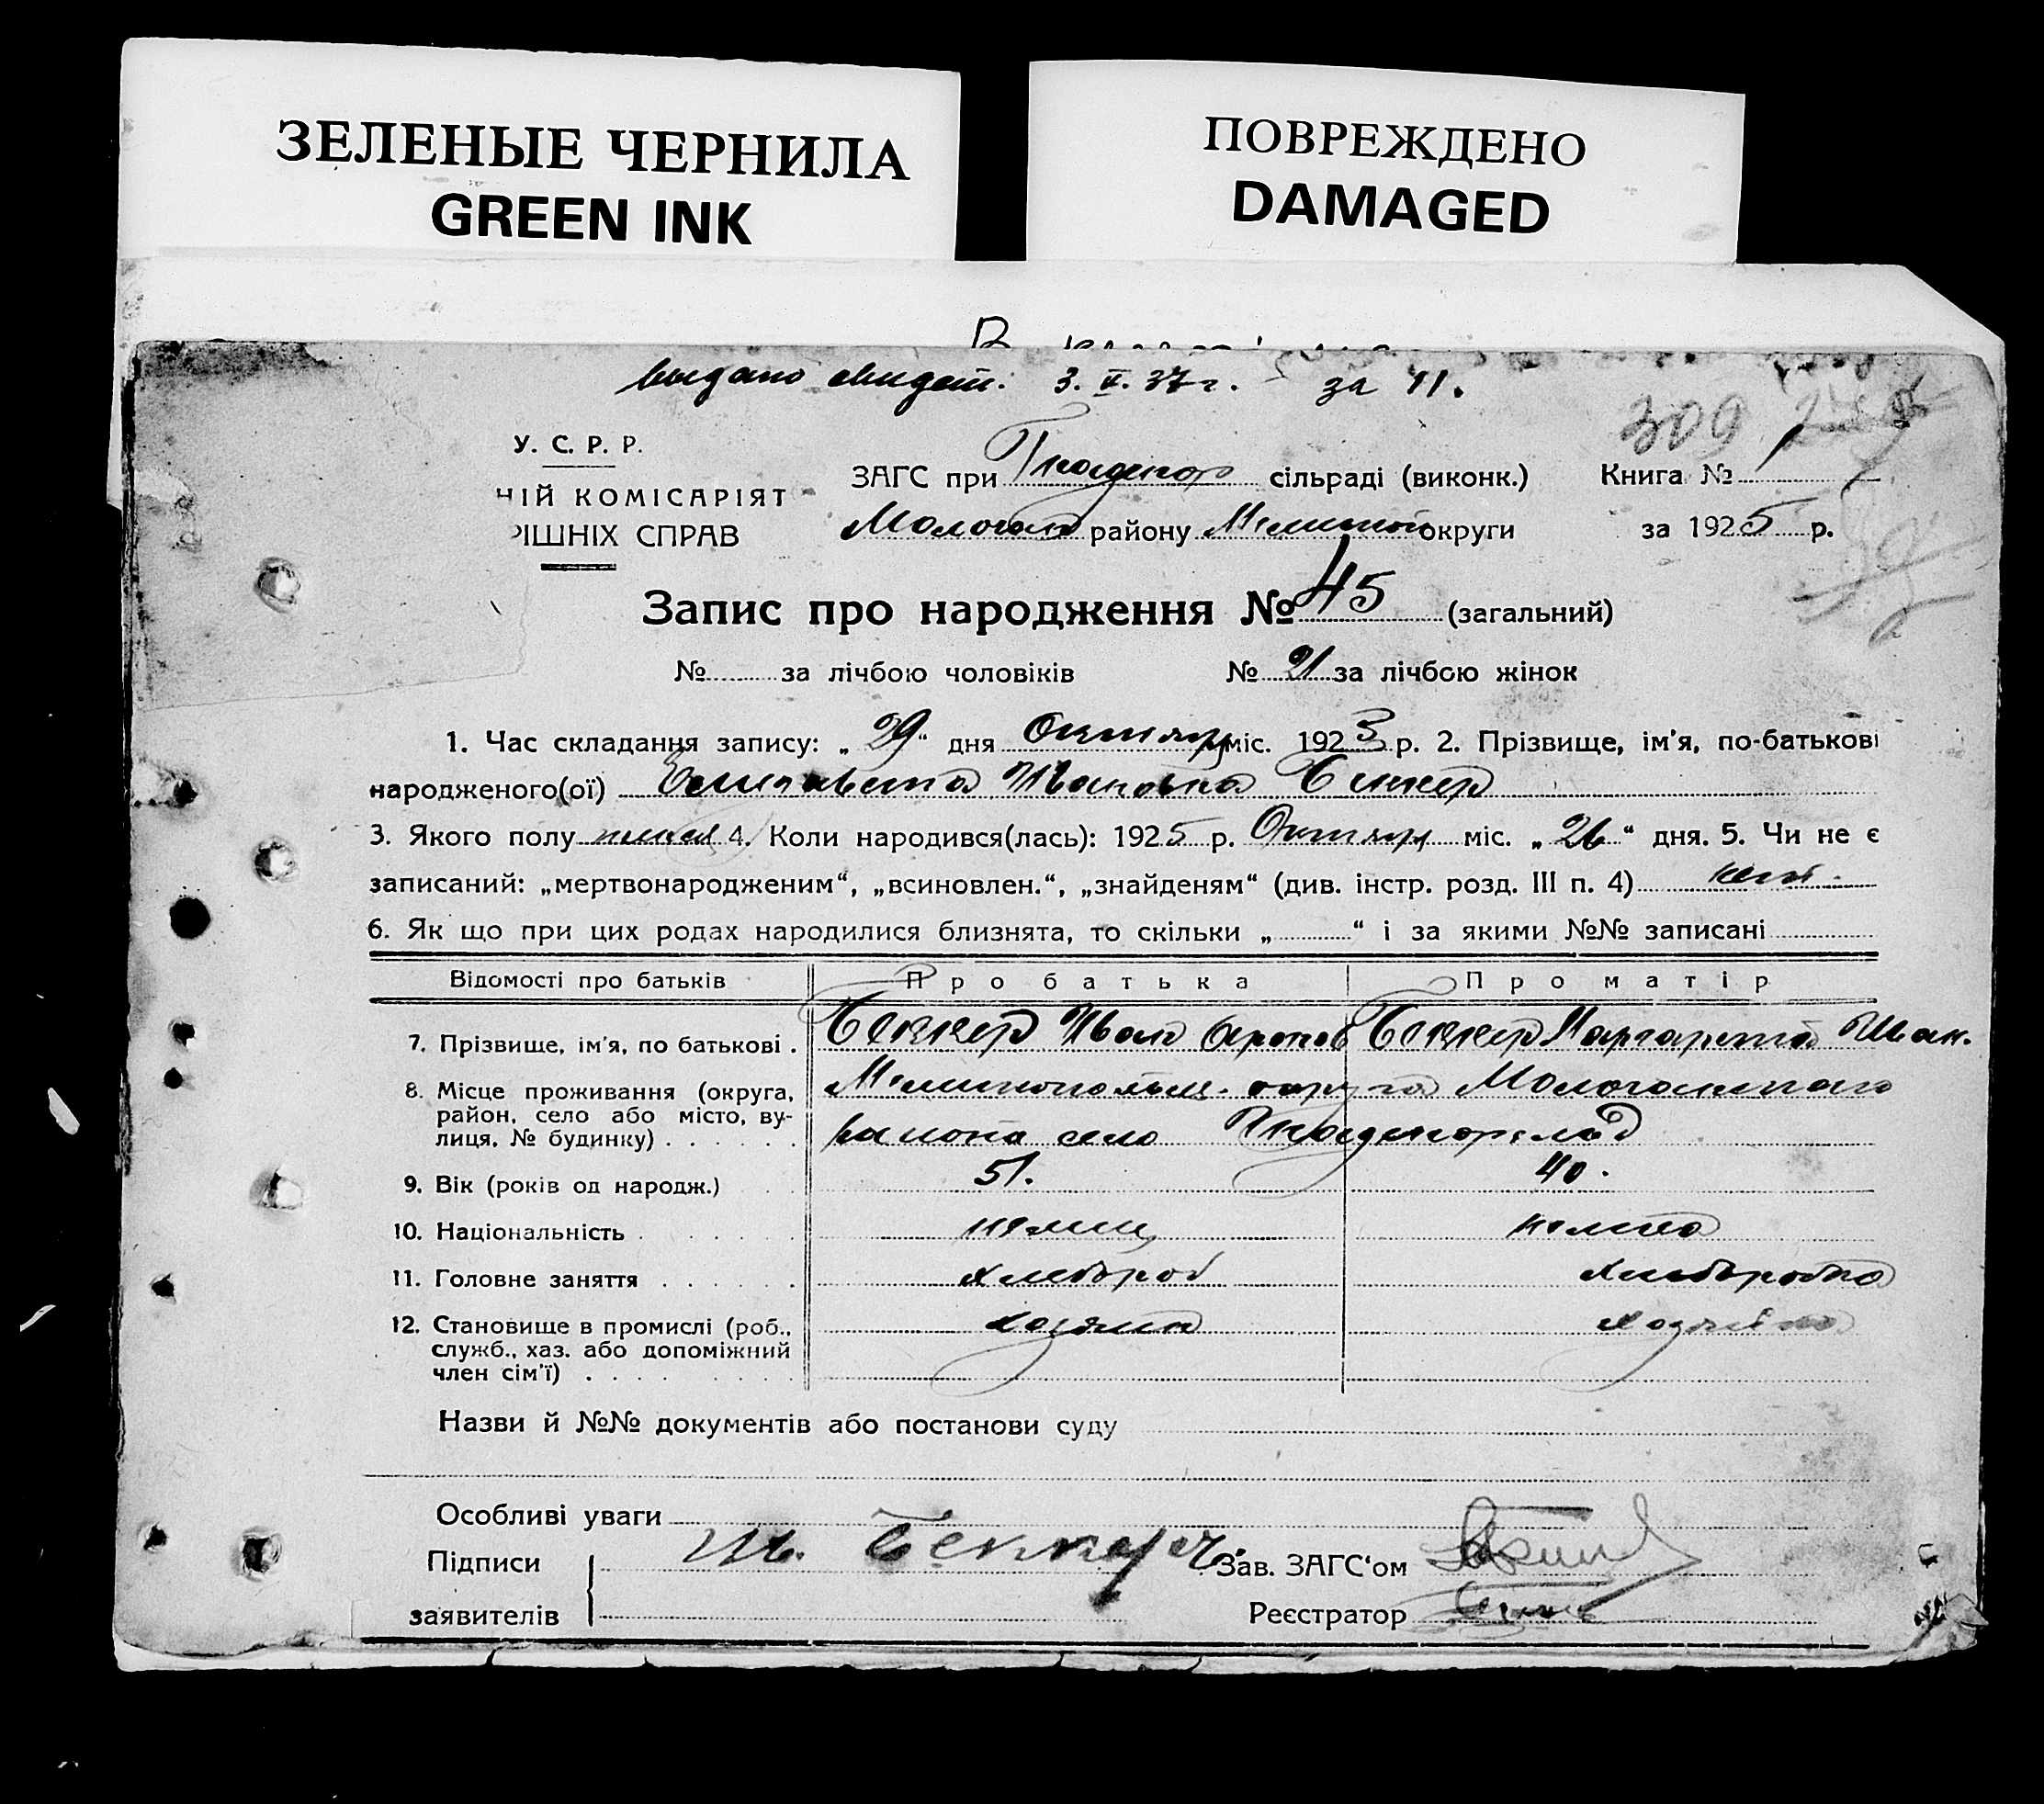 ЗЕЛЕНЫЕ ЧЕРНИЛА
GREEN INK
ПОВРЕЖДЕНО
DAMAGED
выдано свидет. 3. V. 37 г. за 11.
309
У. С. Р. Р.
НІЙ КОМІСАРІЯТ
РІШНІХ СПРАВ
ЗАГС при Гнаденф сільраді (виконк.) Книга № 1
Молочан району Мелитоп округи за 1925 р.
Запис про народження № 45 (загальний)
№ за лічбою чоловіків № 21 за лічбою жінок
1. Час складання запису: „29“ дня Октября міс. 1925 р. 2. Прізвище, ім'я, по-батькові
народженого(ої) Елизавета Ивановна Беккер
3. Якого полу женск 4. Коли народився(лась): 1925 р. Октября міс. „26“ дня. 5. Чи не є
записаний: „мертвонародженим“, „всиновлен.“, „знайденям“ (див. інстр. розд. III п. 4) нет.
6. Як що при цих родах народилися близнята, то скільки „ “ і за якими №№ записані
Відомості про батьків Про батька Про матір
7. Прізвище, ім'я, по батькові . Беккер Иван Беккер Маргарита Иван.
8. Місце проживання (округа, район, село або місто, вулиця, № будинку) Мелитопольск. округа Молочанского
района село Гнаденфельд
9. Вік (років од народж.) 51. 40.
10. Національність немец немка
11. Головне заняття хлебороб хлеборобка
12. Становище в промислі (роб., хозяин хозяйка
служб., хаз. або допоміжний
член сім'ї)
Назви й №№ документів або постанови суду
Особливі уваги
Підписи Ив. Беккер Зав. ЗАГС‘ом
заявителів Реєстратор